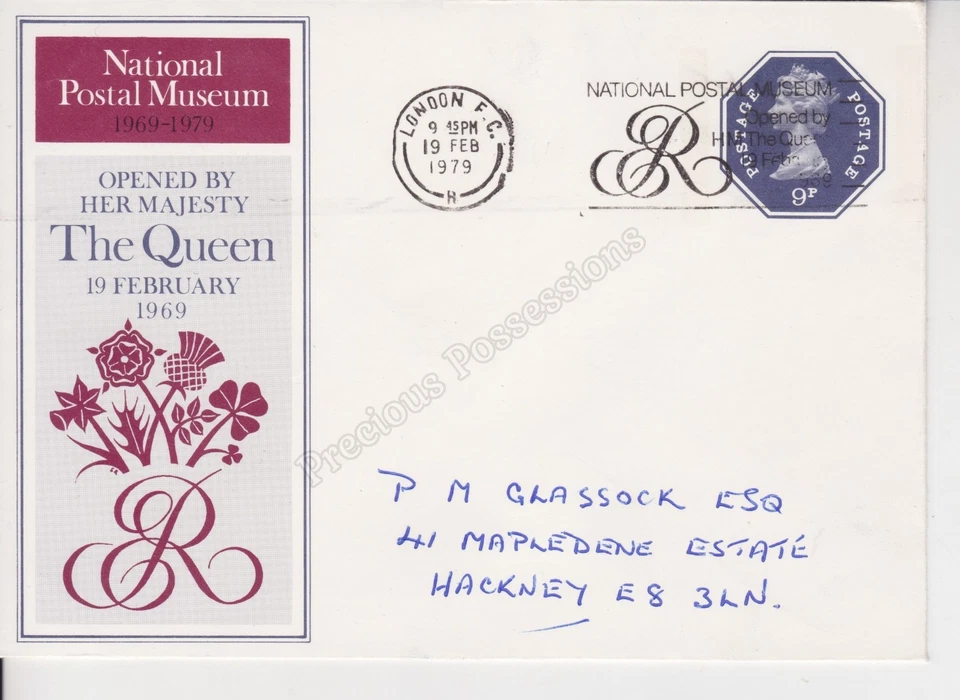 National
Postal Museum
1969-1979
OPENED BY
HER MAJESTY
The Queen
19 FEBRUARY
1969
ER
LONDON E.C.
9 45 PM
19 FEB
1979
R
NATIONAL POSTAL MUSEUM
Opened by
HM The Queen
19 Feb
1969
ER
POSTAGE
POSTAGE
9P
P M GLASSOCK ESQ
41 MAPLEDENE ESTATE
HACKNEY E8 3LN.
Precious Possessions